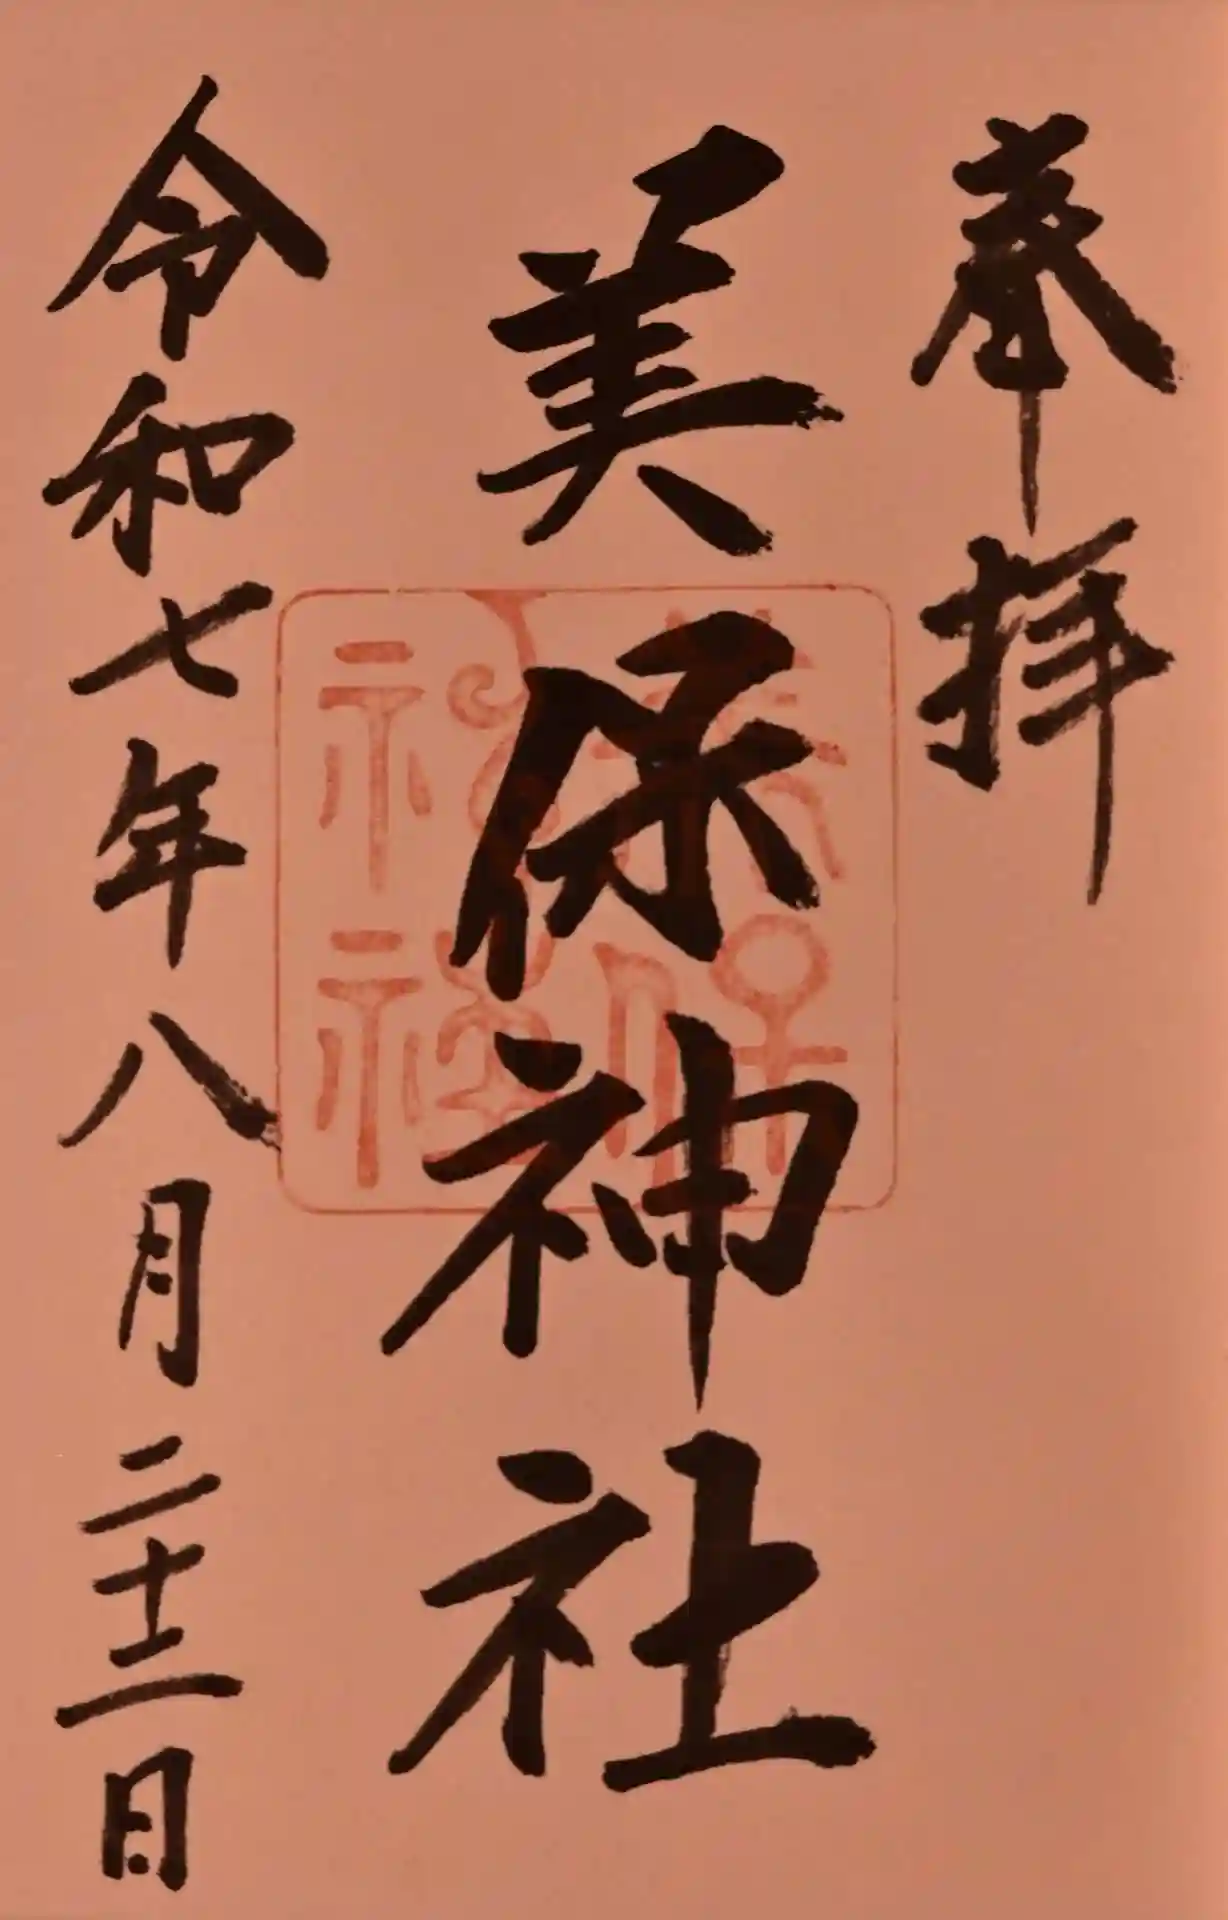 奉拝
美保神社
美保
神社
令和七年八月二十二日